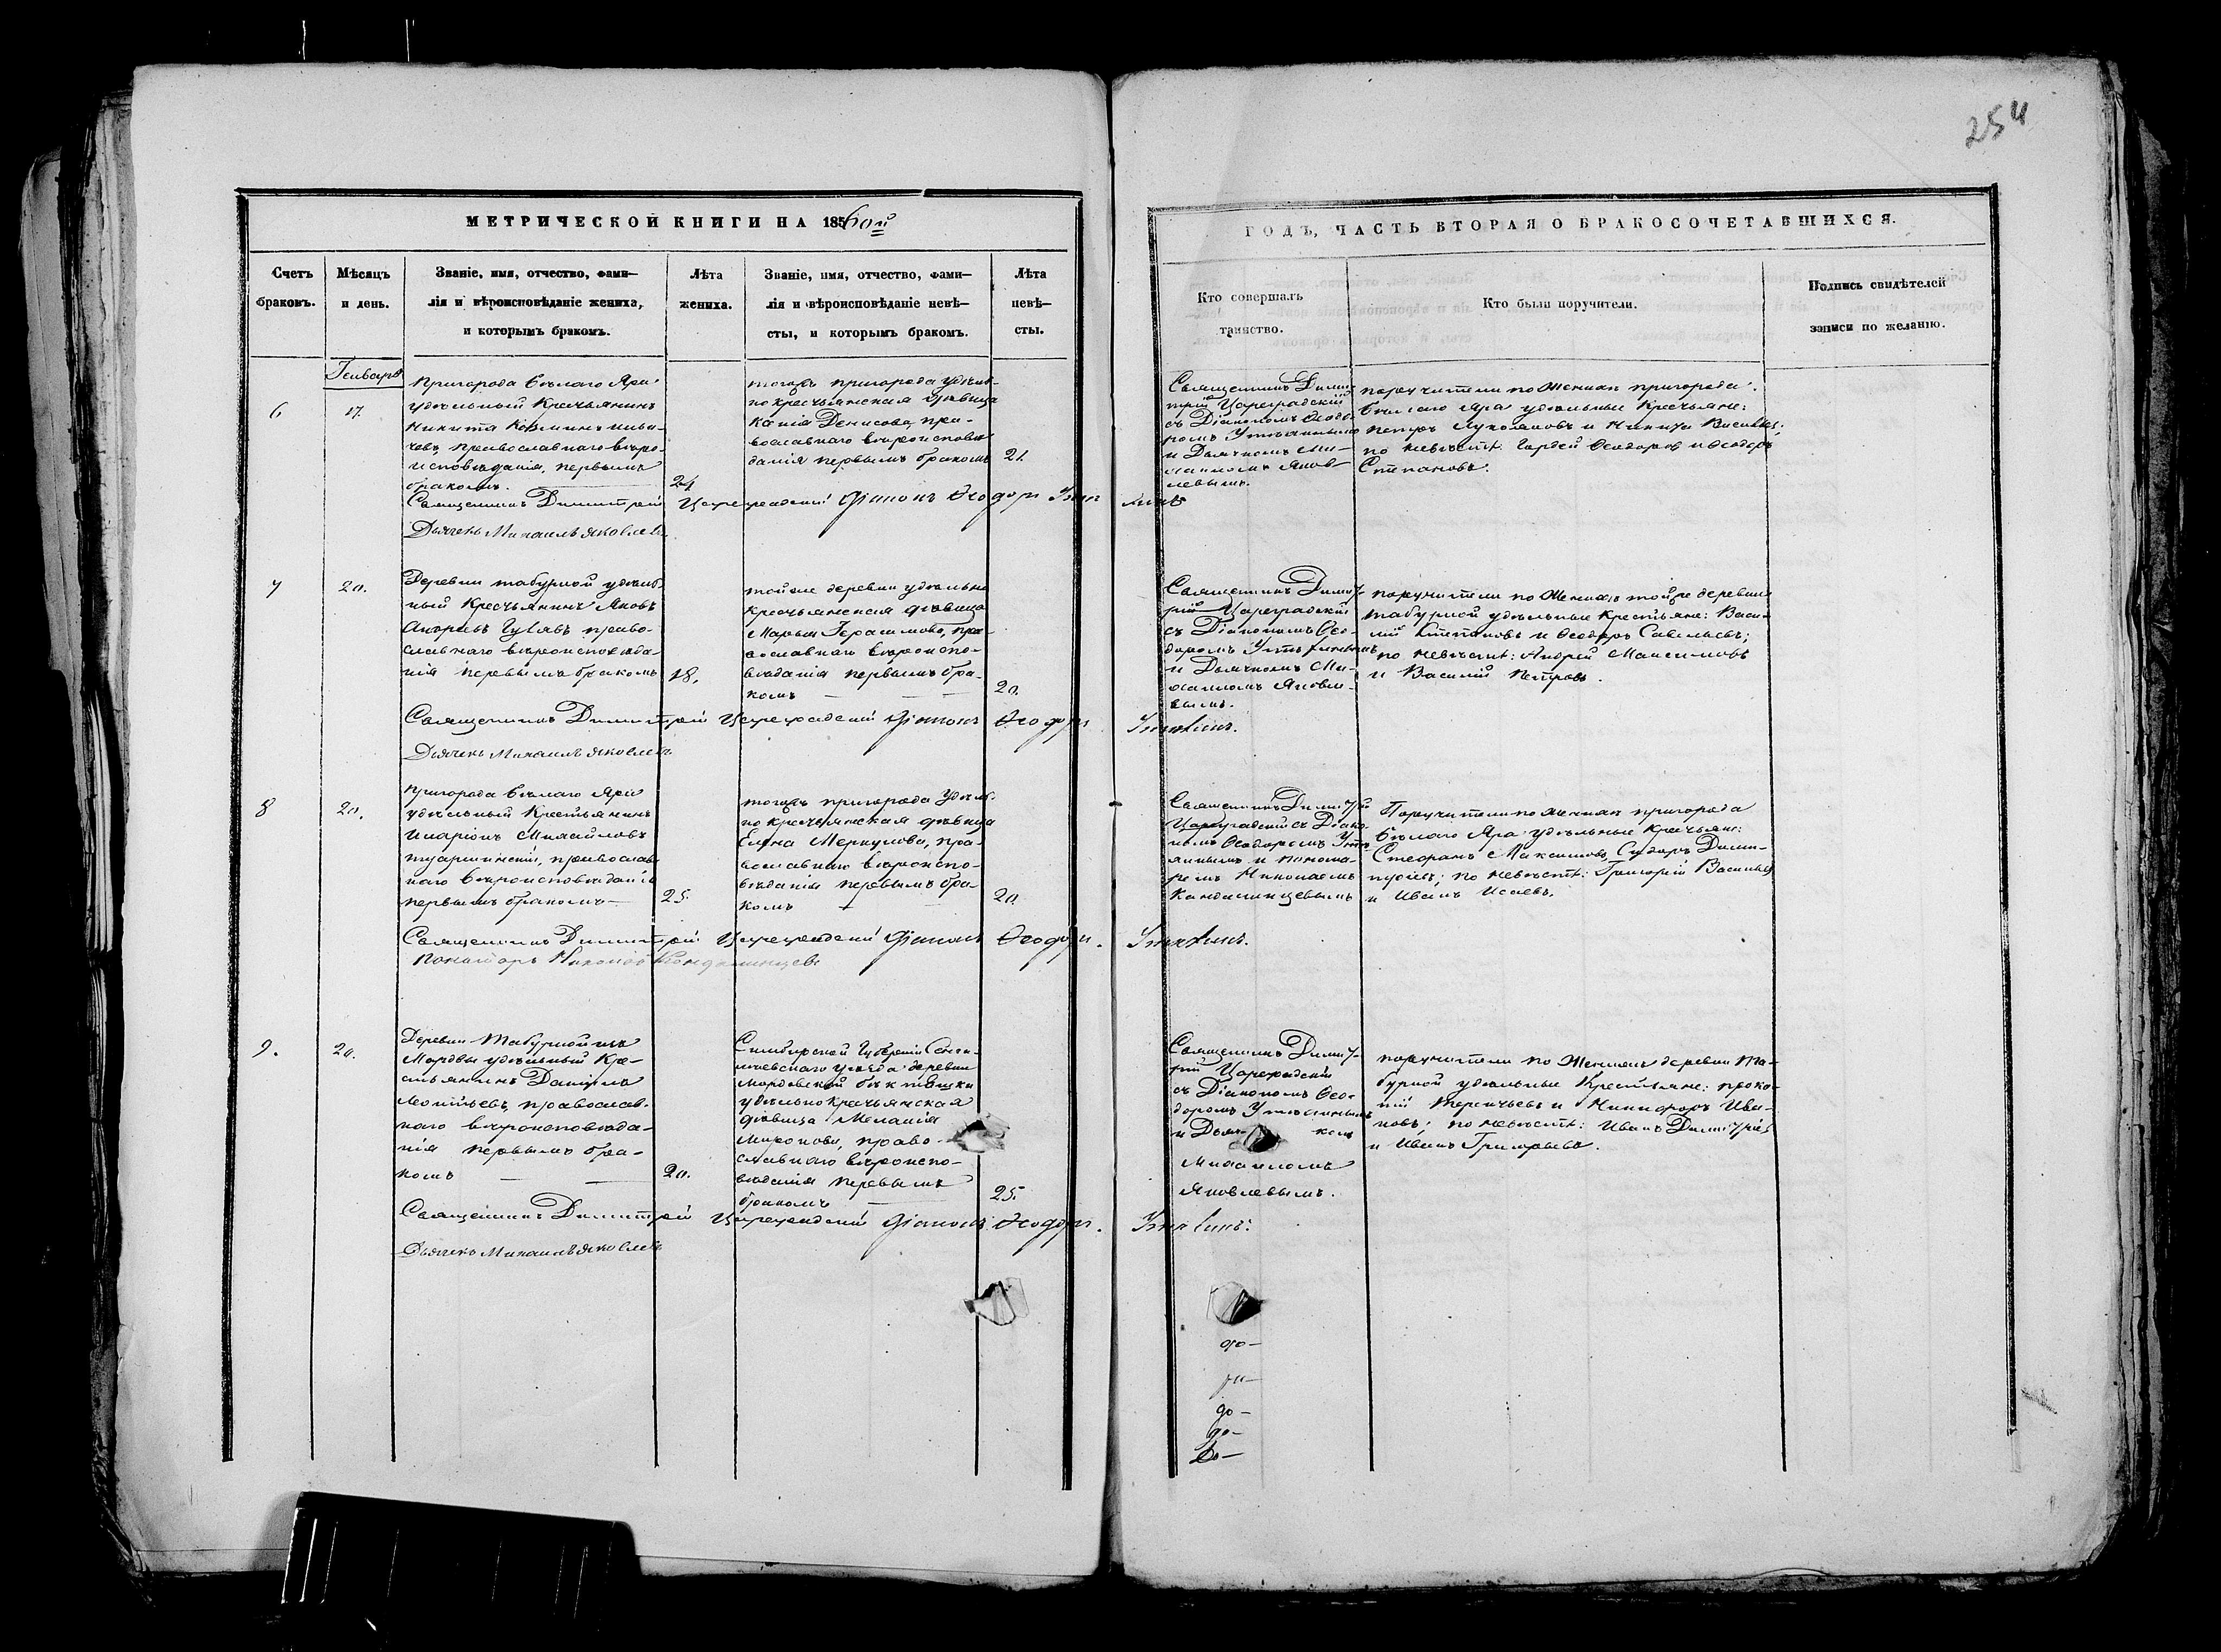 254
МЕТРИЧЕСКОЙ КНИГИ НА 1856ой
ГОДЪ, ЧАСТЬ ВТОРАЯ О БРАКОСОЧЕТАВШИХСЯ.
Счетъ браковъ.
Мѣсяцъ и день.
Званіе, имя, отчество, фами–
лія и вѣроисповѣданіе жениха,
и которымъ бракомъ.
Лѣта
жениха.
Званіе, имя, отчество, фами–
лія и вѣроисповѣданіе невѣ–
сты, и которымъ бракомъ.
Лѣта
невѣ–
сты.
Кто совершалъ
таинство.
Кто были поручители.
Подпись свидѣтелей
записи по желанію.
Генварь
6
17.
Пригорода Бѣлаго Яра
удѣльный Крестьянинъ
Никита Козминъ
православнаго вѣро-
исповѣданія, первымъ
бракомъ.
24
тогожъ пригорода удѣль-
но крестьянская дѣвица
Денисова, пра-
вославнаго вѣроисповѣ
данія первымъ бракомъ
21.
Священникъ Дими-
трій Цареградскій
съ Діакономъ Ѳеодо-
ромъ
и Дьячкомъ Ми-
хаиломъ Яков-
левымъ.
поручители по женихѣ пригорода
Бѣлаго Яра удѣльные Крестьяне:
Петръ и Никита Васильевъ;
по невѣстѣ: Гордей Ѳеодоровъ и Ѳеодоръ
Степановъ.
Священникъ Димитрій Цареградскій Діаконъ Ѳеодоръ
Дьячекъ Михаилъ Яковлевъ
7
20.
Деревни Табурной удѣль-
ный Крестьянинъ Яковъ
Андреевъ право-
славнаго вѣроисповѣда-
нія первымъ бракомъ
18.
тойже деревни удѣльно
крестьянская дѣвица
Марья Герасимова, пра-
вославнаго вѣроиспо-
вѣданія первымъ бра-
комъ
20.
Священникъ Димит-
рій Цареградскій
съ Діакономъ Ѳео-
доромъ
и Дьячкомъ Ми-
хаиломъ Яковле-
вымъ.
поручители по женихѣ тойже деревни
Табурной удѣльные Крестьяне: Васи-
лій Степановъ и Ѳеодоръ Савельевъ;
по невѣстѣ: Андрей Максимовъ
и Василій Петровъ.
Священникъ Димитрій Цареградскій Діаконъ Ѳеодоръ
Дьячекъ Михаилъ Яковлевъ
8
20.
Пригорода Бѣлаго Яра
удѣльный Крестьянинъ
Иларіонъ Михайловъ
православ
наго вѣроисповѣданія
первымъ бракомъ
25.
тогожъ пригорода Удѣль-
но крестьянская дѣвица
Елена Меркулова, пра-
вославнаго вѣроиспо-
вѣданія первымъ бра-
комъ
20.
Священникъ Димитрій
Цареградскій съ Діако-
номъ Ѳеодоромъ
и понома-
ремъ Николаемъ
Кандалинцевымъ
Поручители по женихѣ пригорода
Бѣлаго Яра удѣльные крестьяне:
Стефанъ Максимовъ, Сидоръ Дими-
тріевъ; по невѣстѣ: Григорій Васильевъ
и Иванъ Исаевъ.
Священникъ Димитрій Цареградскій Діаконъ Ѳеодоръ
Пономарь Николай Кандалинцевъ
9.
20.
Деревни Табурной изъ
Мордвы удѣльный Кре-
стьянинъ Даніилъ
Леонтьевъ, православ-
наго вѣроисповѣда-
нія первымъ бра-
комъ
20.
Симбирской Губерніи Сенги-
леевскаго уѣзда деревни
Мордовской
удѣльно крестьянская
дѣвица Меланія
Миронова, право-
славнаго вѣроиспо-
вѣданія первымъ
бракомъ
25.
Священникъ Димит-
рій Цареградскій
съ Діакономъ Ѳео-
доромъ
и Дьячкомъ
Михаиломъ
Яковлевымъ.
поручители по женихѣ деревни Та-
бурной удѣльные Крестьяне: Проко-
пій Терентьевъ и Никифоръ Ива-
новъ; по невѣстѣ: Иванъ Димитріевъ
и Иванъ Григорьевъ.
Священникъ Димитрій Цареградскій Діаконъ Ѳеодоръ
Дьячекъ Михаилъ Яковлевъ